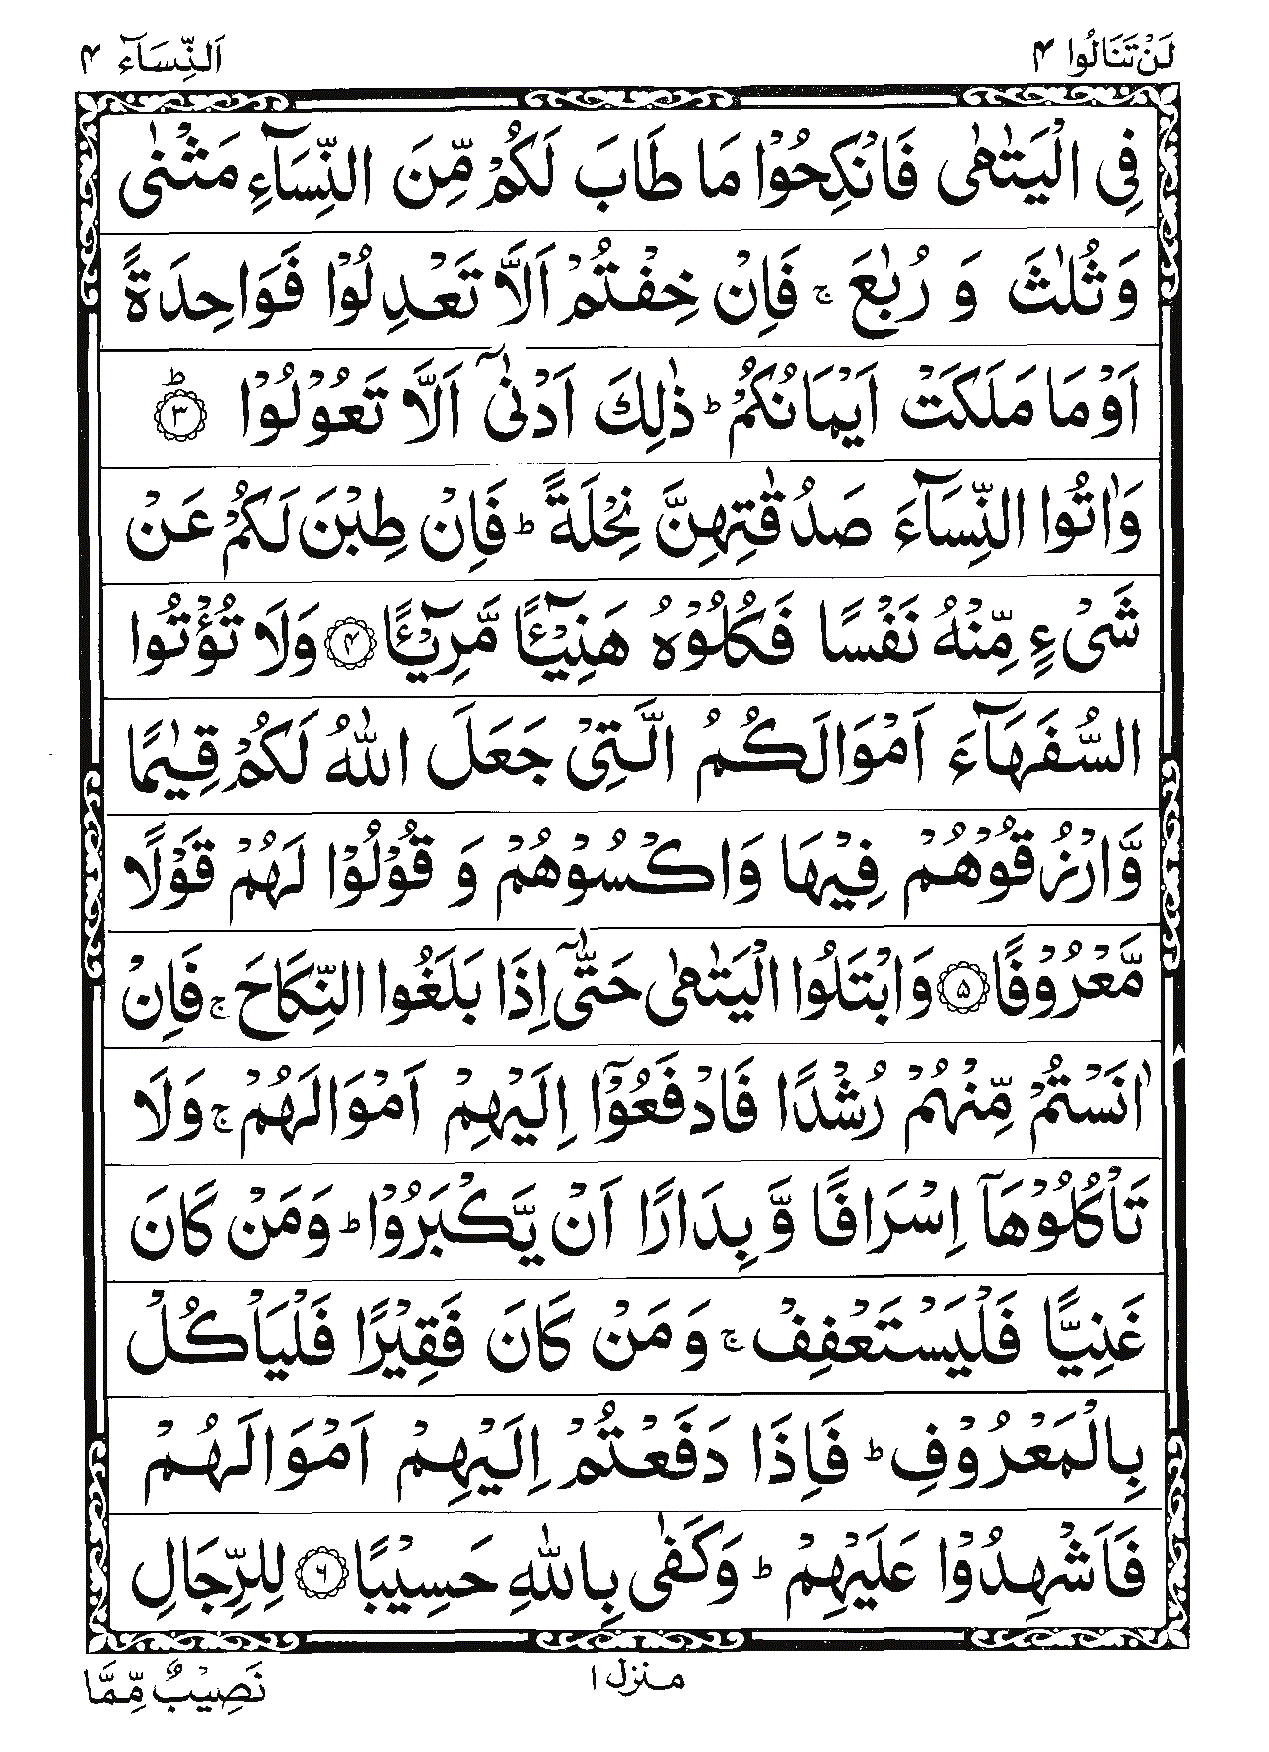 لَنْ تَنَالُوا ۴
اَلنِّسَآء ۴
فِى الْيَتٰمٰى فَانْكِحُوْا مَا طَابَ لَكُمْ مِّنَ النِّسَآءِ مَثْنٰى
وَثُلٰثَ وَ رُبٰعَ ۚ فَاِنْ خِفْتُمْ اَلَّا تَعْدِلُوْا فَوَاحِدَةً
اَوْ مَا مَلَكَتْ اَيْمَانُكُمْ ؕ ذٰلِكَ اَدْنٰٓى اَلَّا تَعُوْلُوْا ؕ ﴿۳﴾
وَاٰتُوا النِّسَآءَ صَدُقٰتِهِنَّ نِحْلَةً ؕ فَاِنْ طِبْنَ لَكُمْ عَنْ
شَىْءٍ مِّنْهُ نَفْسًا فَكُلُوْهُ هَنِيْٓــًٔا مَّرِيْٓــًٔا ﴿۴﴾ وَلَا تُؤْتُوا
السُّفَهَآءَ اَمْوَالَكُمُ الَّتِىْ جَعَلَ اللّٰهُ لَكُمْ قِيٰمًا
وَّارْزُقُوْهُمْ فِيْهَا وَاكْسُوْهُمْ وَ قُوْلُوْا لَهُمْ قَوْلًا
مَّعْرُوْفًا ﴿۵﴾ وَابْتَلُوا الْيَتٰمٰى حَتّٰٓى اِذَا بَلَغُوا النِّكَاحَ ۚ فَاِنْ
اٰنَسْتُمْ مِّنْهُمْ رُشْدًا فَادْفَعُوْٓا اِلَيْهِمْ اَمْوَالَهُمْ ۚ وَلَا
تَاْكُلُوْهَآ اِسْرَافًا وَّ بِدَارًا اَنْ يَّكْبَرُوْا ؕ وَمَنْ كَانَ
غَنِيًّا فَلْيَسْتَعْفِفْ ۚ وَ مَنْ كَانَ فَقِيْرًا فَلْيَاْكُلْ
بِالْمَعْرُوْفِ ؕ فَاِذَا دَفَعْتُمْ اِلَيْهِمْ اَمْوَالَهُمْ
فَاَشْهِدُوْا عَلَيْهِمْ ؕ وَكَفٰى بِاللّٰهِ حَسِيْبًا ﴿۶﴾ لِلرِّجَالِ
منزل ۱
نَصِيْبٌ مِّمَّا